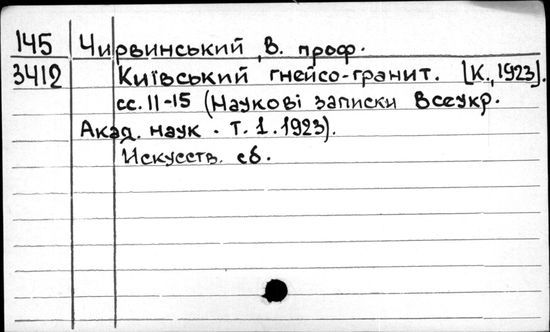 145 Чирвинський, В. проф.
3412 Київський гнейсо-гранит. [К., 1923].
сс. 11-15 (Наукові записки Всеукр.
Акад. наук. Т. 1. 1923).
Искусств. сб.